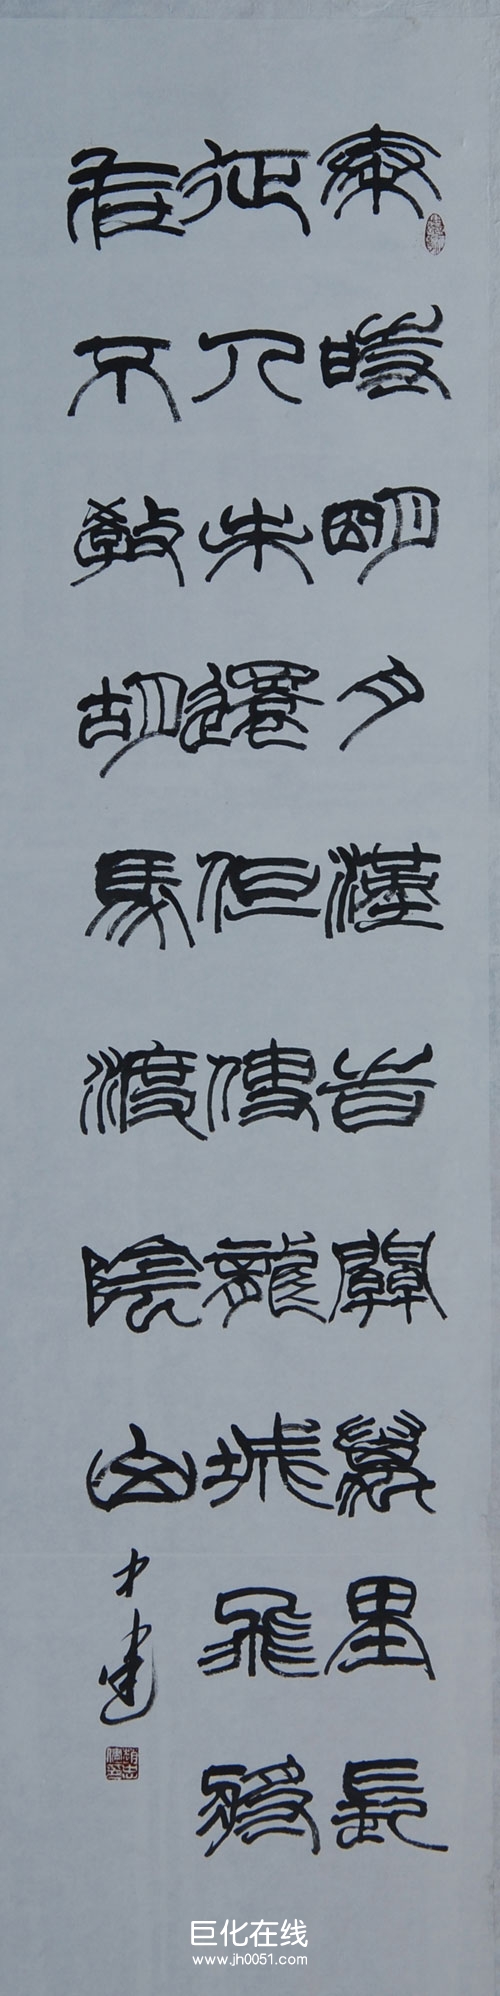 秦時明月漢旹關萬里長
征人未還但使龍城飛將
在不教胡馬渡陰山
巨化在线
www.jh0051.com